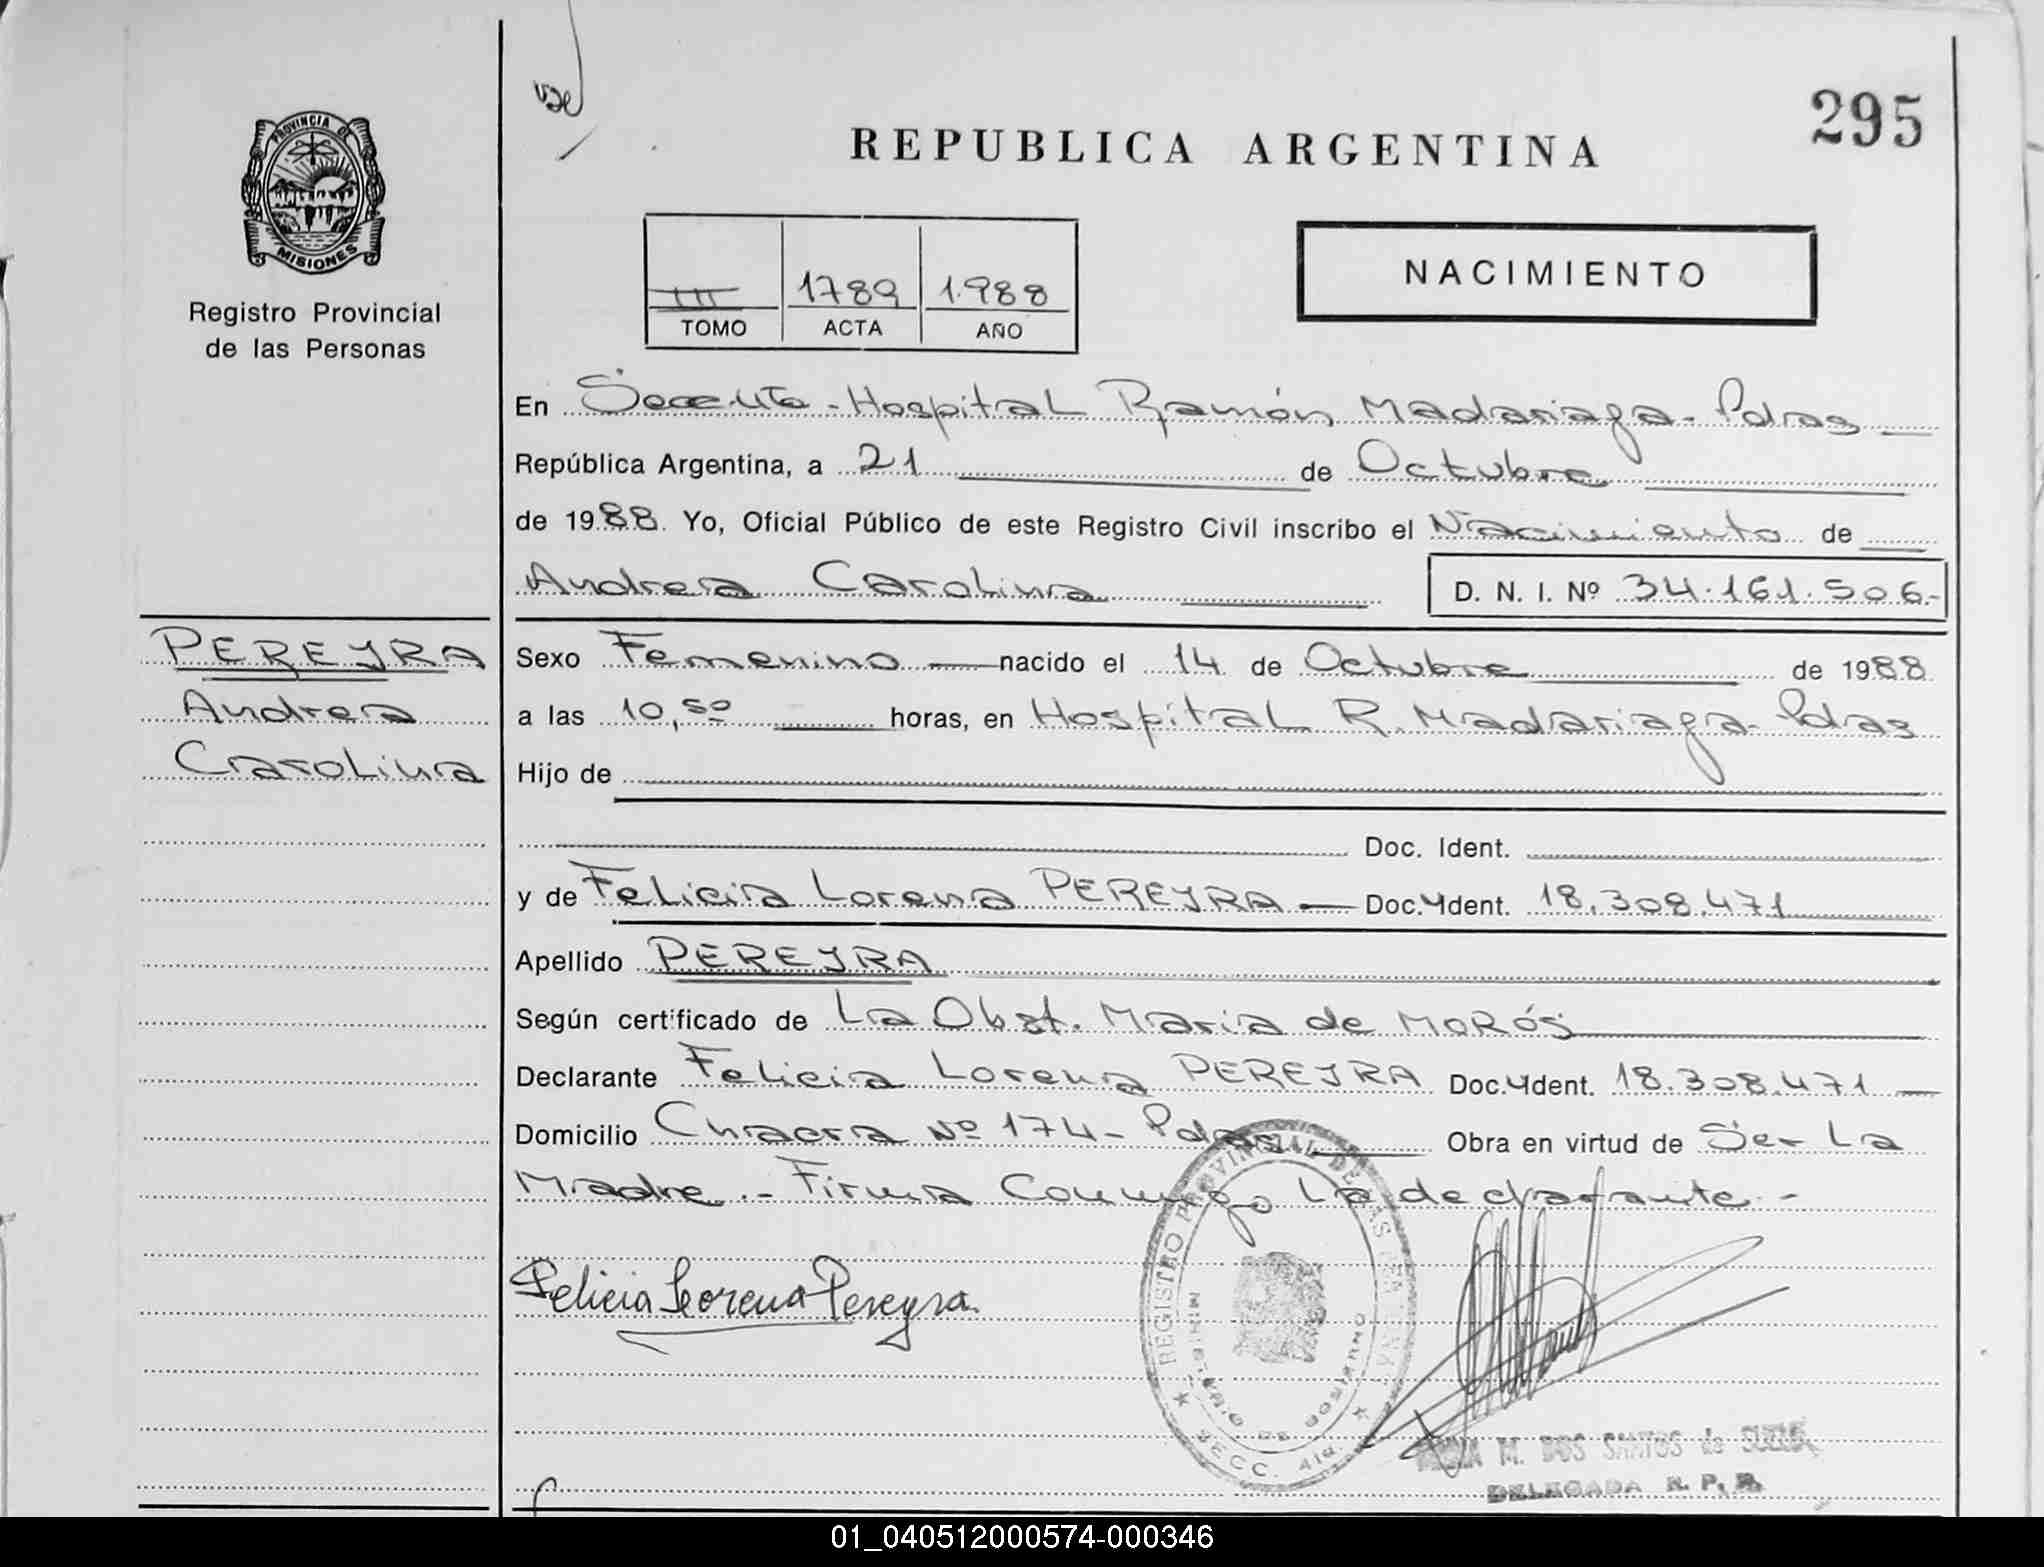 295
REPUBLICA ARGENTINA
PROVINCIA DE
MISIONES
Registro Provincial
de las Personas
III 1789 1.988
TOMO ACTA AÑO
NACIMIENTO
En Hospital Ramón Madariaga - Pdas
República Argentina, a 21 de Octubre
de 1988. Yo, Oficial Público de este Registro Civil inscribo el Nacimiento de
Andrea Carolina
D. N. I. Nº 34.161.506.-
PEREYRA
Andrea
Carolina
Sexo Femenino — nacido el 14 de Octubre de 1988
a las 10,50 horas, en Hospital R. Madariaga - Pdas
Hijo de
Doc. Ident.
y de Felicia Lorena PEREYRA — Doc. Ident. 18.308.471
Apellido PEREYRA
Según certificado de La Obst. Maria de MORÓS
Declarante Felicia Lorena PEREYRA Doc. Ident. 18.308.471 —
Domicilio Chacra Nº 174 - Pdas Obra en virtud de Ser La
Madre .- Firma Conmigo La declarante.-
Felicia Lorena Pereyra.
REGISTRO PROVINCIAL DE LAS PERSONAS
MINISTERIO DE GOBIERNO
SECC. 4ta.
M. DOS SANTOS de
DELEGADA R. P. P.
01_040512000574-000346